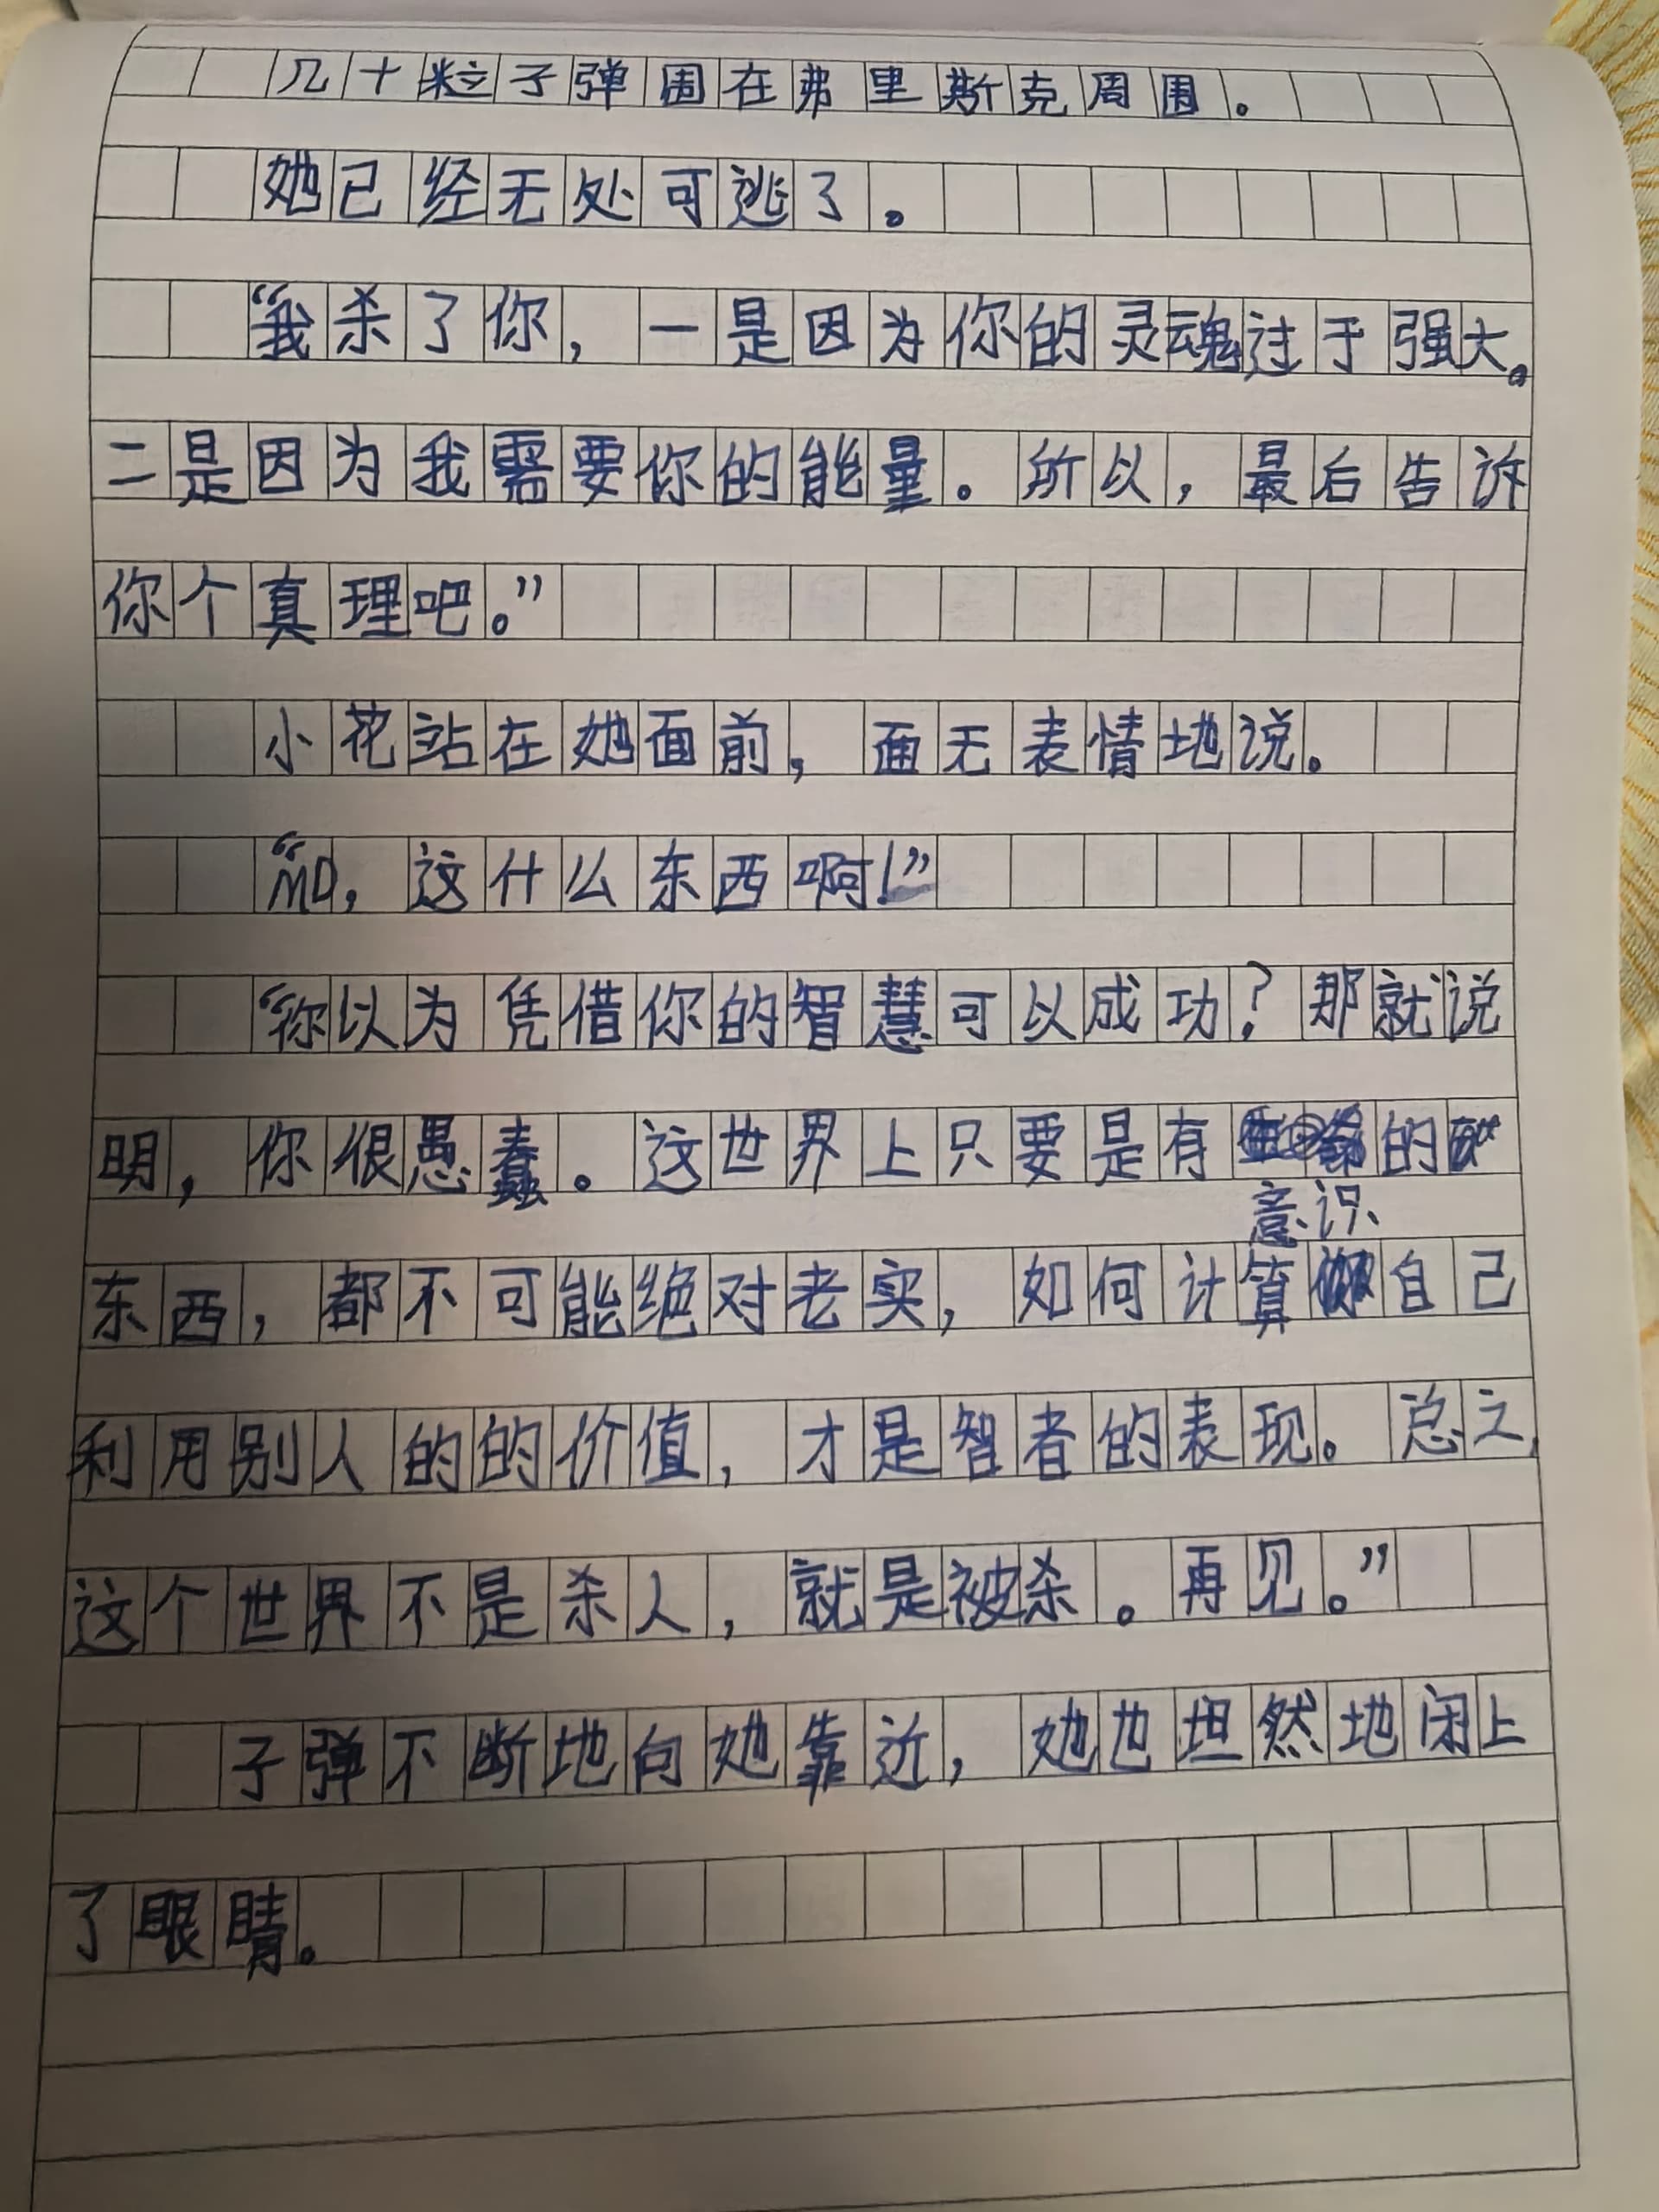 几十粒子弹围在弗里斯克周围。
她已经无处可逃了。
“我杀了你，一是因为你的灵魂过于强大。
二是因为我需要你的能量。所以，最后告诉
你个真理吧。”
小花站在她面前，面无表情地说。
“MD，这什么东西啊！”
“你以为凭借你的智慧可以成功？那就说
明，你很愚蠢。这世界上只要是有的
意识
东西，都不可能绝对老实，如何计算自己
利用别人的的价值，才是智者的表现。总之，
这个世界不是杀人，就是被杀。再见。”
子弹不断地向她靠近，她也坦然地闭上
了眼睛。